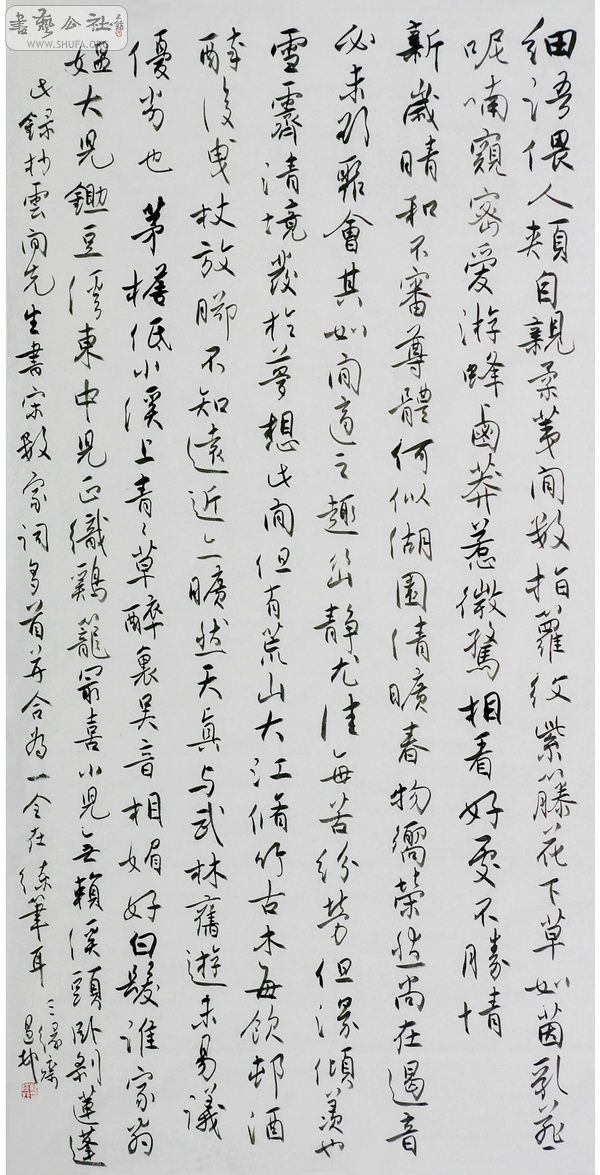 書藝公社
WWW.SHUFA.ORG
細語偎人頰自親柔荑閒數指籮紋紫籐花下草如茵乳燕
呢喃窺密愛遊蜂鹵莽惹微驚相看好處不勝情
新歲晴和不審尊體何似湖園清曠春物嚮榮然尚在遏音
必未能照會其如閒適之趣茲靜尤佳每苦紛勞但深傾羨也
雪霽清境發於夢想此間但有荒山大江脩竹古木每飲村酒
醉後曳杖放腳不知遠近亦曠然天真与武林舊遊未易議
優劣也 茅檐低小溪上青々草醉裏吳音相媚好白髮誰家翁
媼大兒鋤豆溪東中兒正織鷄籠最喜小兒無賴溪頭臥剝蓮蓬
此錄抄雲間先生書宋數家詞多首並合為一全在練筆耳 三緣齋